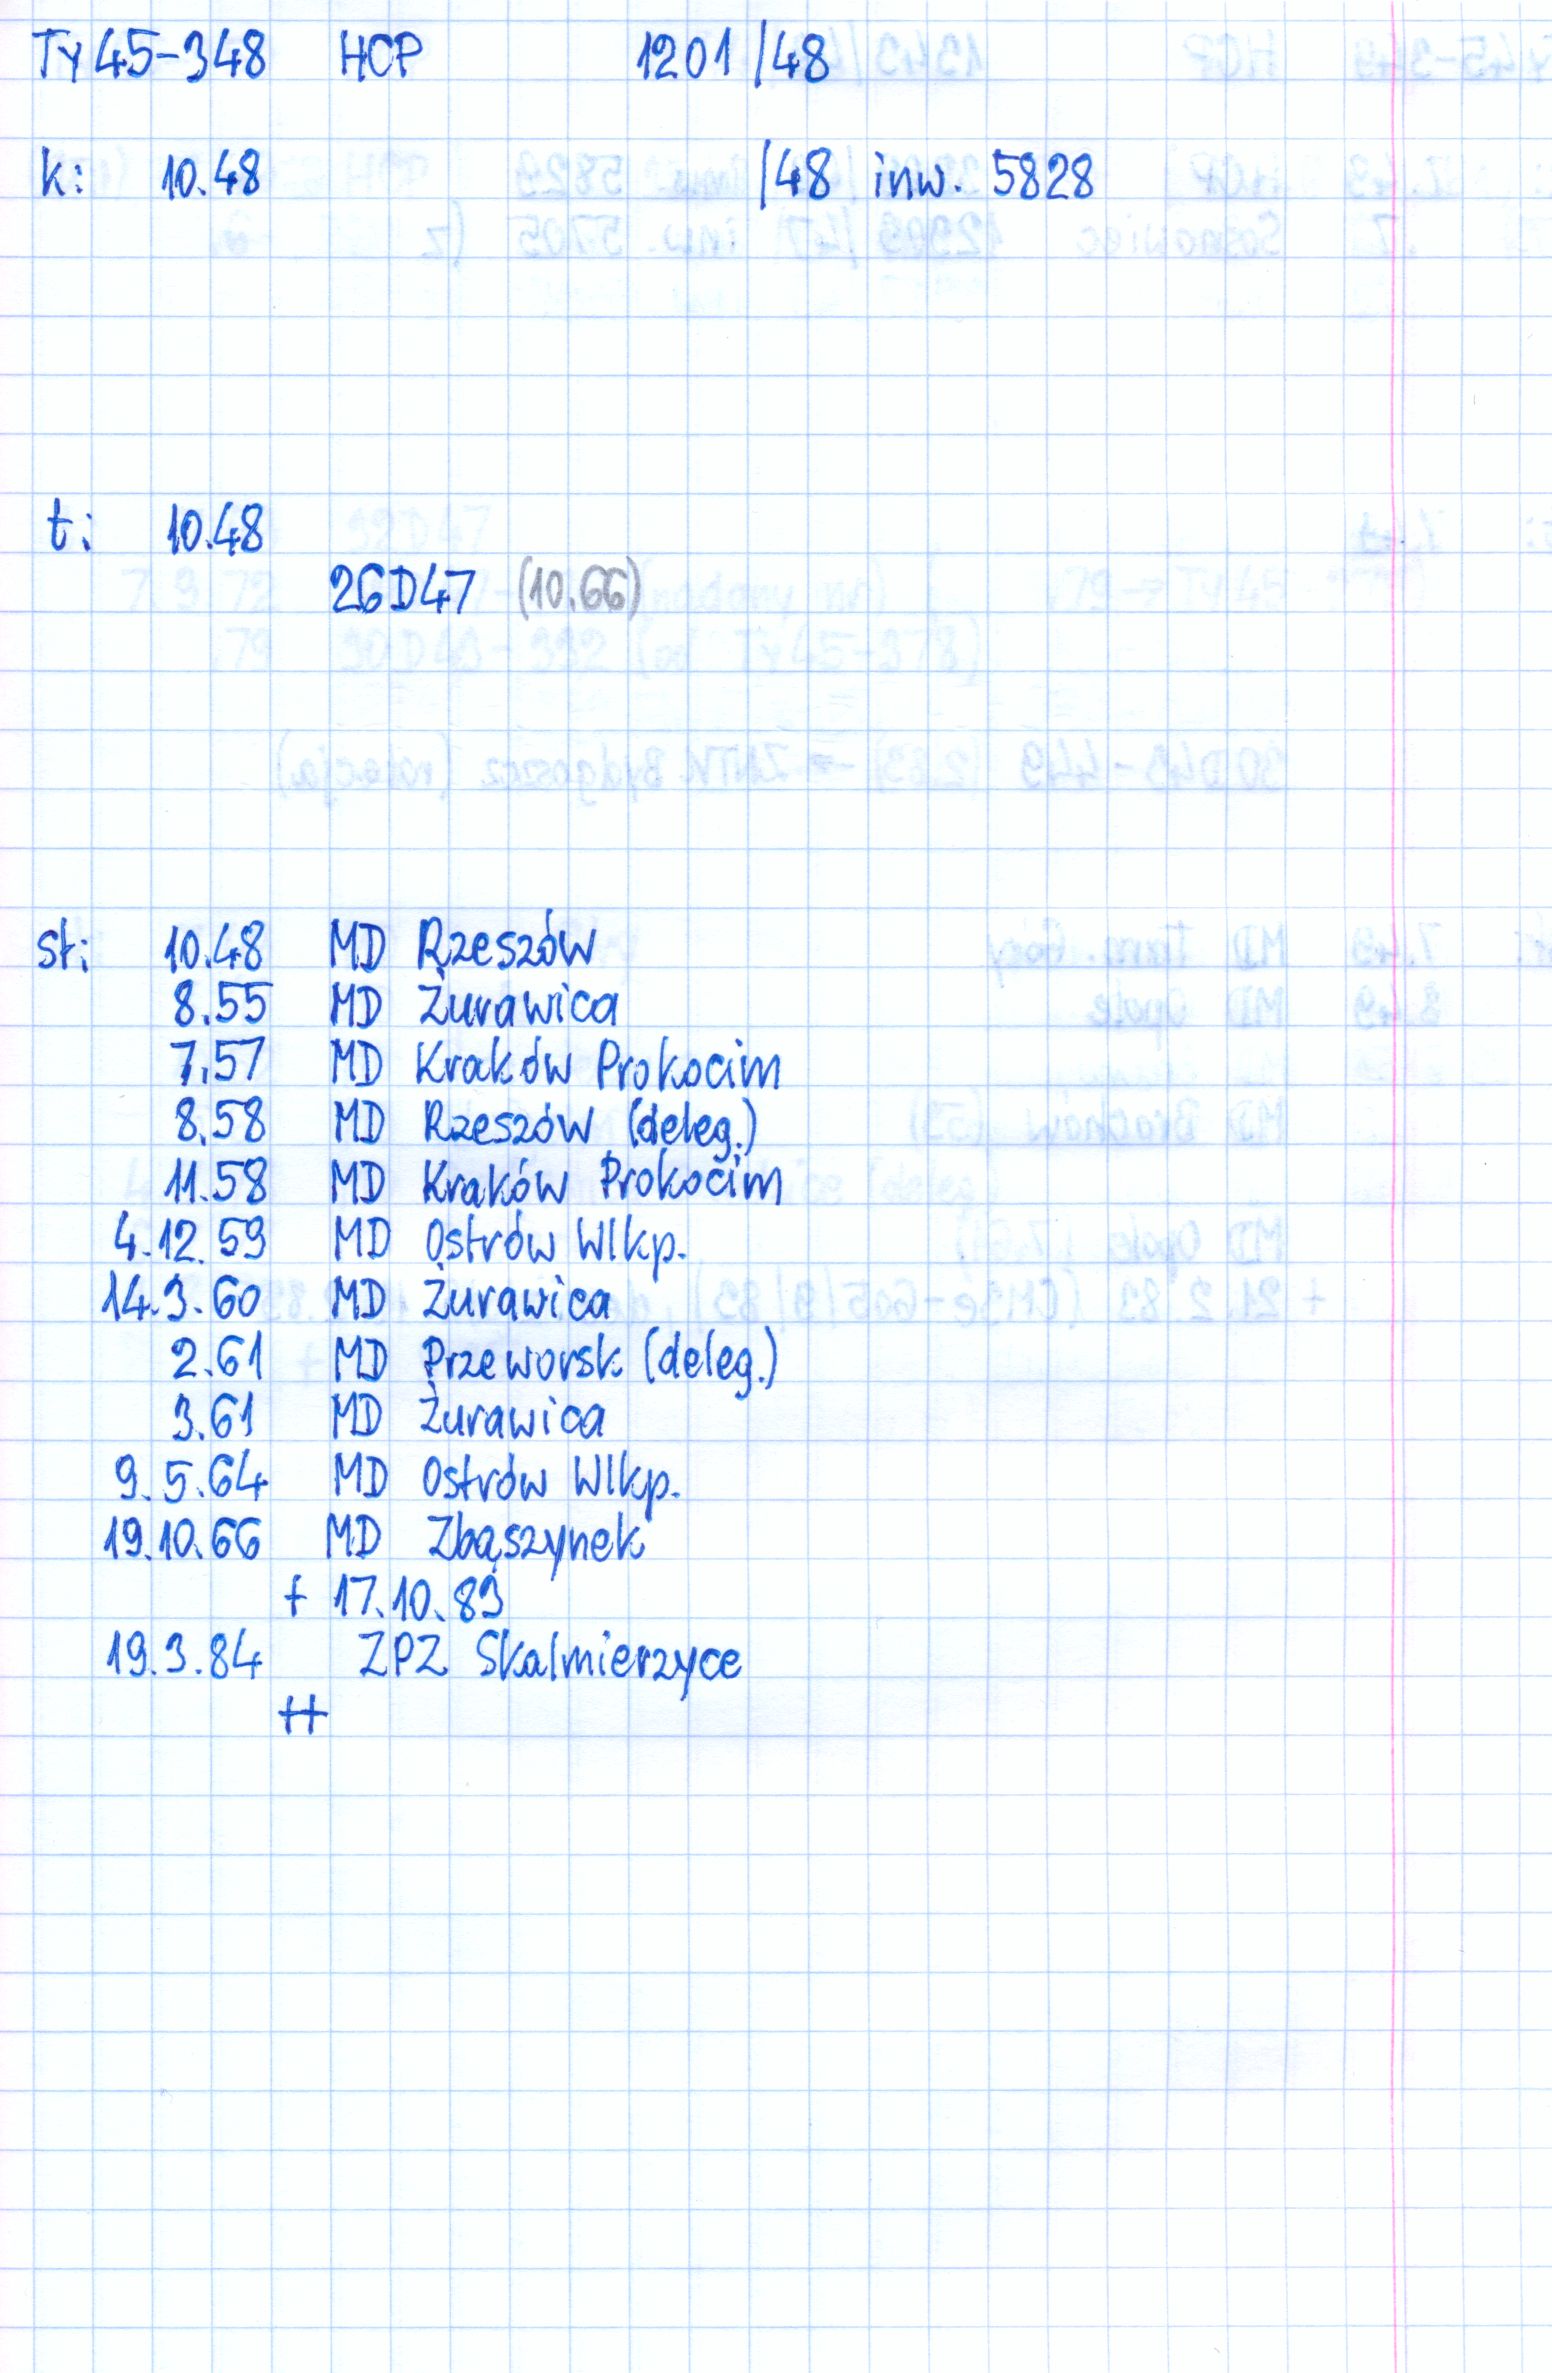 Ty45-348 HCP 1201/48
k: 10.48 /48 inw. 5828
t: 10.48
26D47 (10.66)
st: 10.48 MD Rzeszów
8.55 MD Żurawica
7.57 MD Kraków Prokocim
8.58 MD Rzeszów (deleg.)
11.58 MD Kraków Prokocim
4.12.59 MD Ostrów Wlkp.
14.3.60 MD Żurawica
2.61 MD Przeworsk (deleg.)
3.61 MD Żurawica
9.5.64 MD Ostrów Wlkp.
19.10.66 MD Zbąszynek
+ 17.10.83
19.3.84 ZPZ Skalmierzyce
++